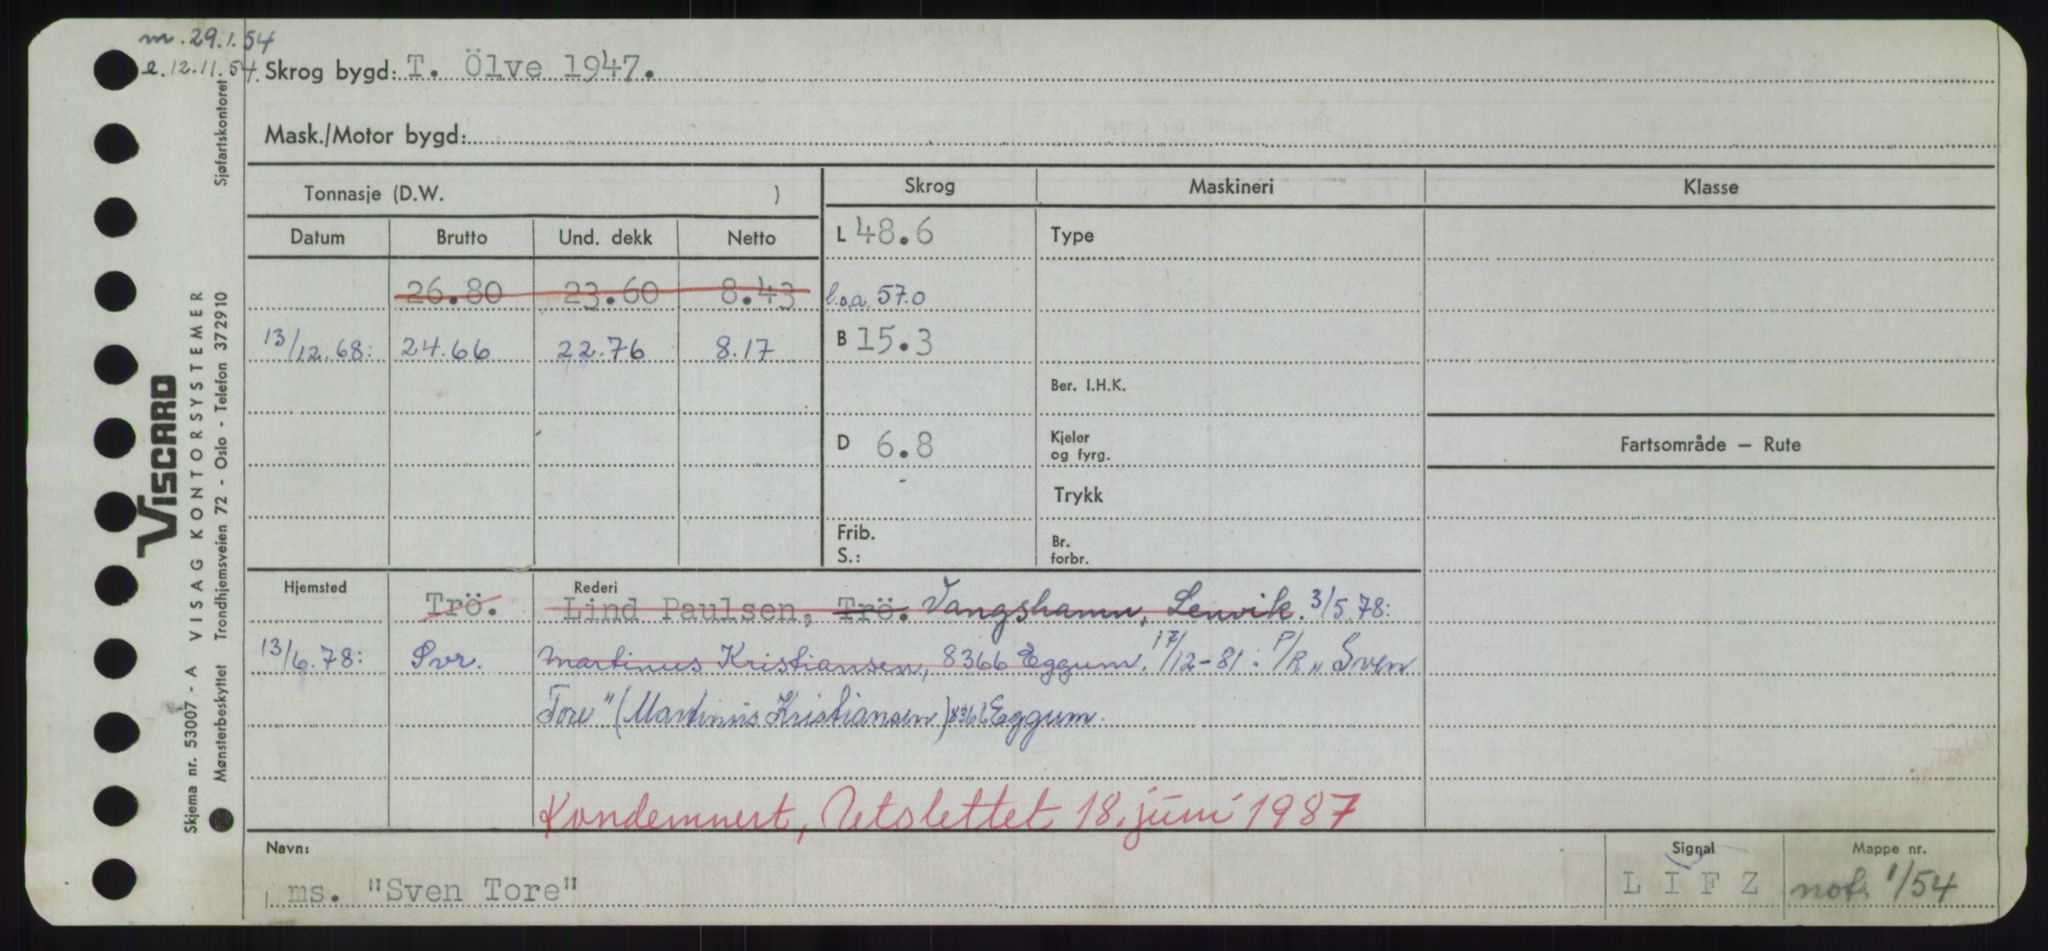 m. 29.1.54
e. 12.11.54.
Skrog bygd: T. Ölve 1947.
Mask./Motor bygd:
Tonnasje (D.W. )
Skrog
Maskineri
Klasse
Datum Brutto Und. dekk Netto
L 48.6
Type
26.80 23.60 8.43
l.o.a. 57.0
13/12.68: 24.66 22.76 8.17
B 15.3
Ber. I.H.K.
D 6.8
Kjeler
og fyrg.
Fartsområde — Rute
Trykk
Frib.
S.:
Br.
forbr.
Hjemsted
Rederi
Trö. Lind Paulsen, Trö. Vangshamn, Lenvik. 3/5.78:
13/6.78: Svr. Martinus Kristiansen, 8366 Eggum. 17/12-81: P/R "Sven
Tore" (Martinus Kristiansen) 8366 Eggum.
Kondemnert, Utslettet 18. juni 1987
Navn:
ms. "Sven Tore"
Signal
L I F Z
Mappe nr.
not. 1/54
VISCARD
Skjema nr. 53007 - A VISAG KONTORSYSTEMER
Mønsterbeskyttet Trondhjemsveien 72 - Oslo - Telefon 372910 Sjøfartskontoret